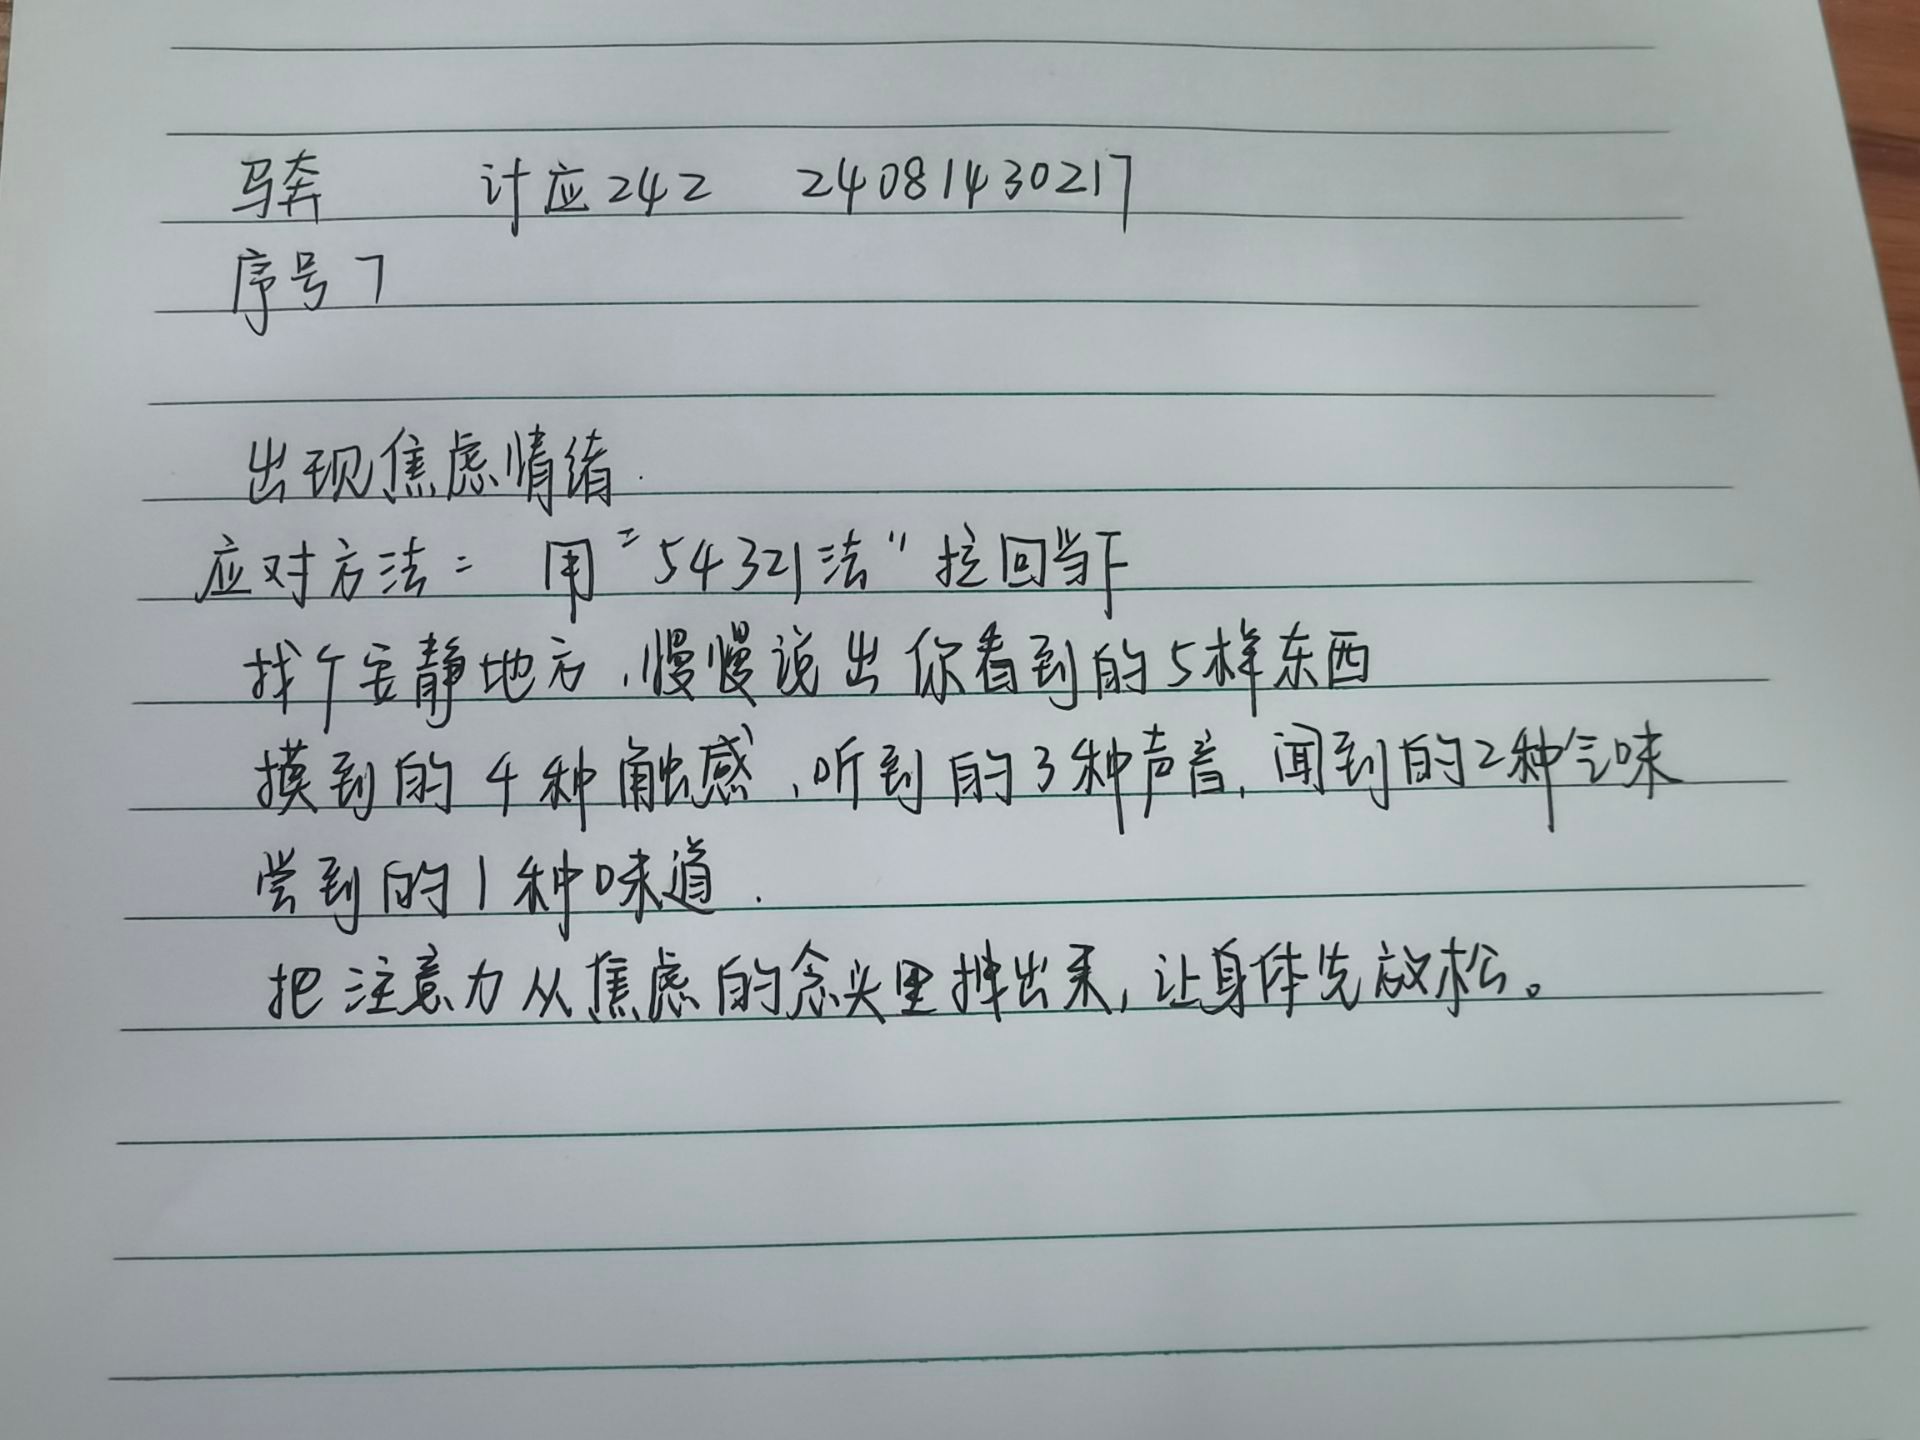 马犇 计应242 24081430217
序号7
出现焦虑情绪.
应对方法: 用“54321法”拉回当下
找个安静地方,慢慢说出你看到的5样东西
摸到的4种触感,听到的3种声音,闻到的2种气味
尝到的1种味道.
把注意力从焦虑的念头里拽出来,让身体先放松。